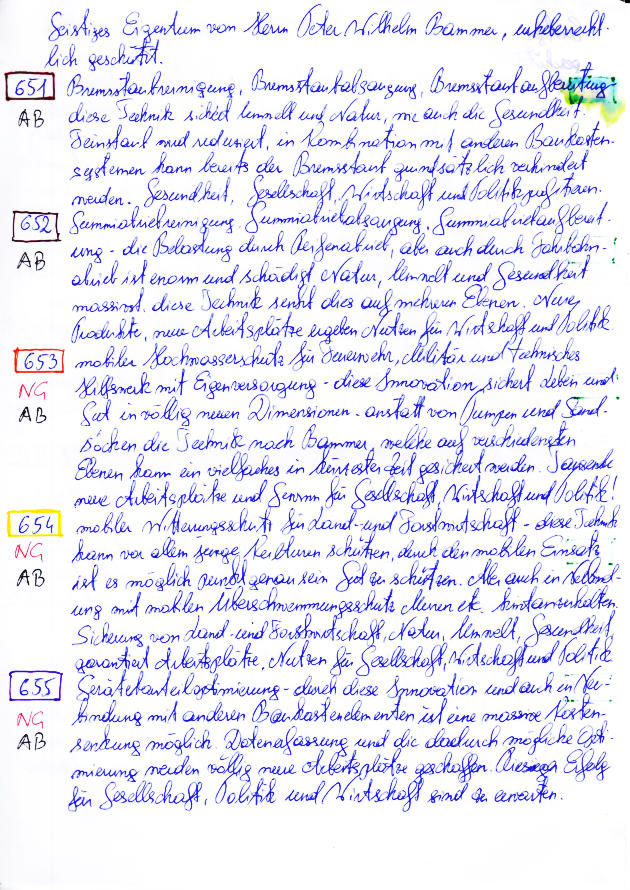 Geistiges Eigentum von Herrn Peter Wilhelm Bammer, urheberrecht-
lich geschützt.
651 Bremsstaubreinigung, Bremsstaubabsaugung, Bremsstaubaufbereitung-
AB diese Technik sichert Umwelt und Natur, wie auch die Gesundheit.
Feinstaub wird reduziert, in Kombination mit anderen Baukasten-
systemen kann bereits der Bremsstaub grundsätzlich verhindert
werden. Gesundheit, Gesellschaft, Wirtschaft und Politik profitieren.
652 Gummiabriebreinigung. Gummiabriebabsaugung, Gummiabriebaufbereit-
AB ung - die Belastung durch Reifenabrieb, aber auch durch Fahrbahn-
abrieb ist enorm und schädigt Natur, Umwelt und Gesundheit
massivst. diese Technik senkt dies auf mehreren Ebenen. Neue
Produkte, neue Arbeitsplätze ergeben Nutzen für Wirtschaft und Politik
653 mobiler Hochwasserschutz für Feuerwehr, Militär und technisches
NG Hilfswerk mit Eigenversorgung - diese Innovation sichert Leben und
AB Gut in völlig neuen Dimensionen - anstatt von Pumpen und Sand-
säcken, die Technik nach Bammer, welche auf verschiedensten
Ebenen kann ein vielfaches in kürzester Zeit gesichert werden. Tausende
neue Arbeitsplätze und Gewinn für Gesellschaft, Wirtschaft und Politik!
654 mobiler Witterungsschutz für Land- und Forstwirtschaft - diese Technik
NG kann vor allem junge Kulturen schützen, durch den mobilen Einsatz
AB ist es möglich punktgenau sein Gut zu schützen. Aber auch in Verbind-
ung mit mobilen Überschwemmungsschutz Muren etc. hintanzuhalten.
Sicherung von Land- und Forstwirtschaft, Natur, Umwelt, Gesundheit,
garantiert Arbeitsplätze, Nutzen für Gesellschaft, Wirtschaft und Politik
655 Gerätebauteiloptimierung - durch diese Innovation und auch in Ver-
NG bindung mit anderen Baukastenelementen ist eine massive Kosten-
AB senkung möglich. Datenerfassung und die dadurch mögliche Opti-
mierung werden völlig neue Arbeitsplätze geschaffen. Erfolg
für Gesellschaft, Politik und Wirtschaft sind zu erwarten.